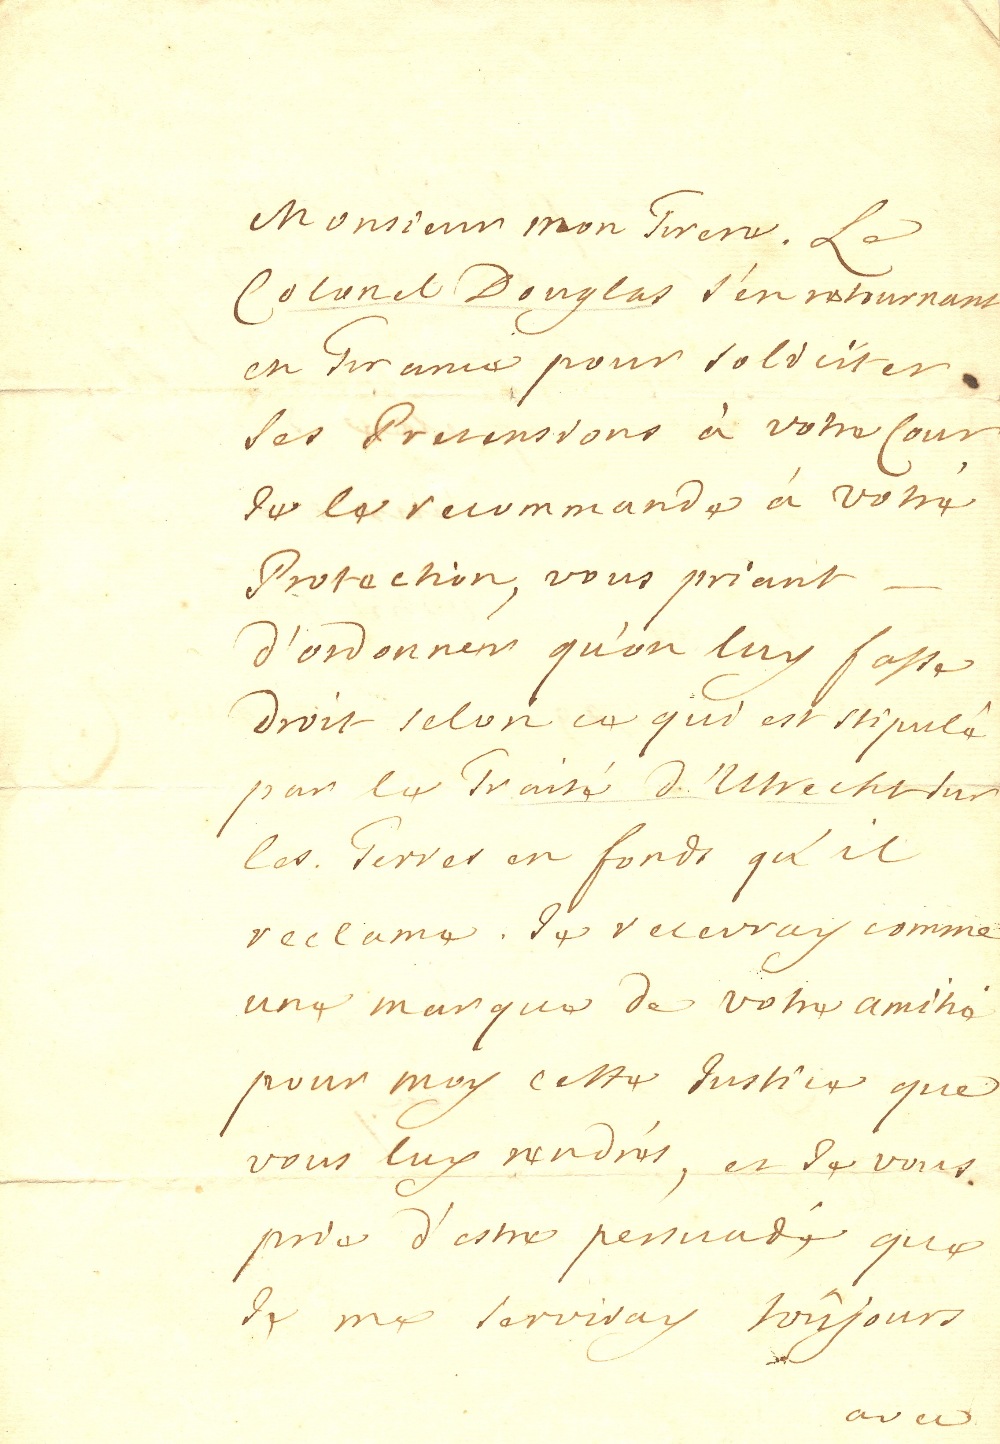 Monsieur mon Frere. Le
Colonel Douglas s'en retournant
en France pour soliciter
ses Pretensions à votre Cour
Je le recommande à votre
Protection, vous priant —
d'ordonner qu'on luy fasse
droit selon ce qui est stipulé
par le Traité d'Utrecht sur
les Terres en fonds qu'il
reclame. Je recevray comme
une marque de votre amitié
pour moy cette Justice que
vous luy rendrés, et Je vous
prie d'estre persuadé que
Je me serviray toûjours
avec